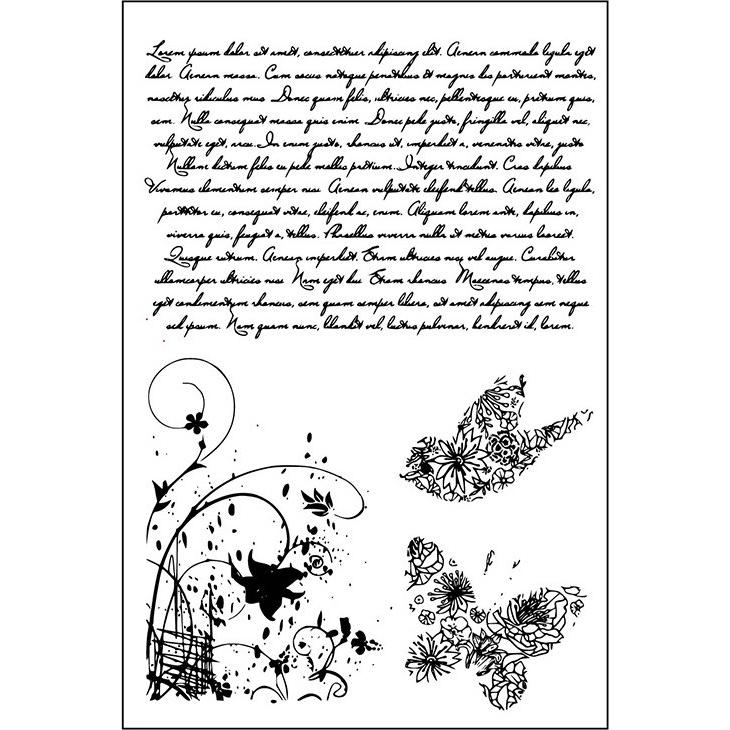 Lorem ipsum dolor sit amet, consectetuer adipiscing elit. Aenean commodo ligula eget
dolor. Aenean massa. Cum sociis natoque penatibus et magnis dis parturient montes,
nascetur ridiculus mus. Donec quam felis, ultricies nec, pellentesque eu, pretium quis,
sem. Nulla consequat massa quis enim. Donec pede justo, fringilla vel, aliquet nec,
vulputate eget, arcu. In enim justo, rhoncus ut, imperdiet a, venenatis vitae, justo.
Nullam dictum felis eu pede mollis pretium. Integer tincidunt. Cras dapibus.
Vivamus elementum semper nisi. Aenean vulputate eleifend tellus. Aenean leo ligula,
porttitor eu, consequat vitae, eleifend ac, enim. Aliquam lorem ante, dapibus in,
viverra quis, feugiat a, tellus. Phasellus viverra nulla ut metus varius laoreet.
Quisque rutrum. Aenean imperdiet. Etiam ultricies nisi vel augue. Curabitur
ullamcorper ultricies nisi. Nam eget dui. Etiam rhoncus. Maecenas tempus, tellus
eget condimentum rhoncus, sem quam semper libero, sit amet adipiscing sem neque
sed ipsum. Nam quam nunc, blandit vel, luctus pulvinar, hendrerit id, lorem.